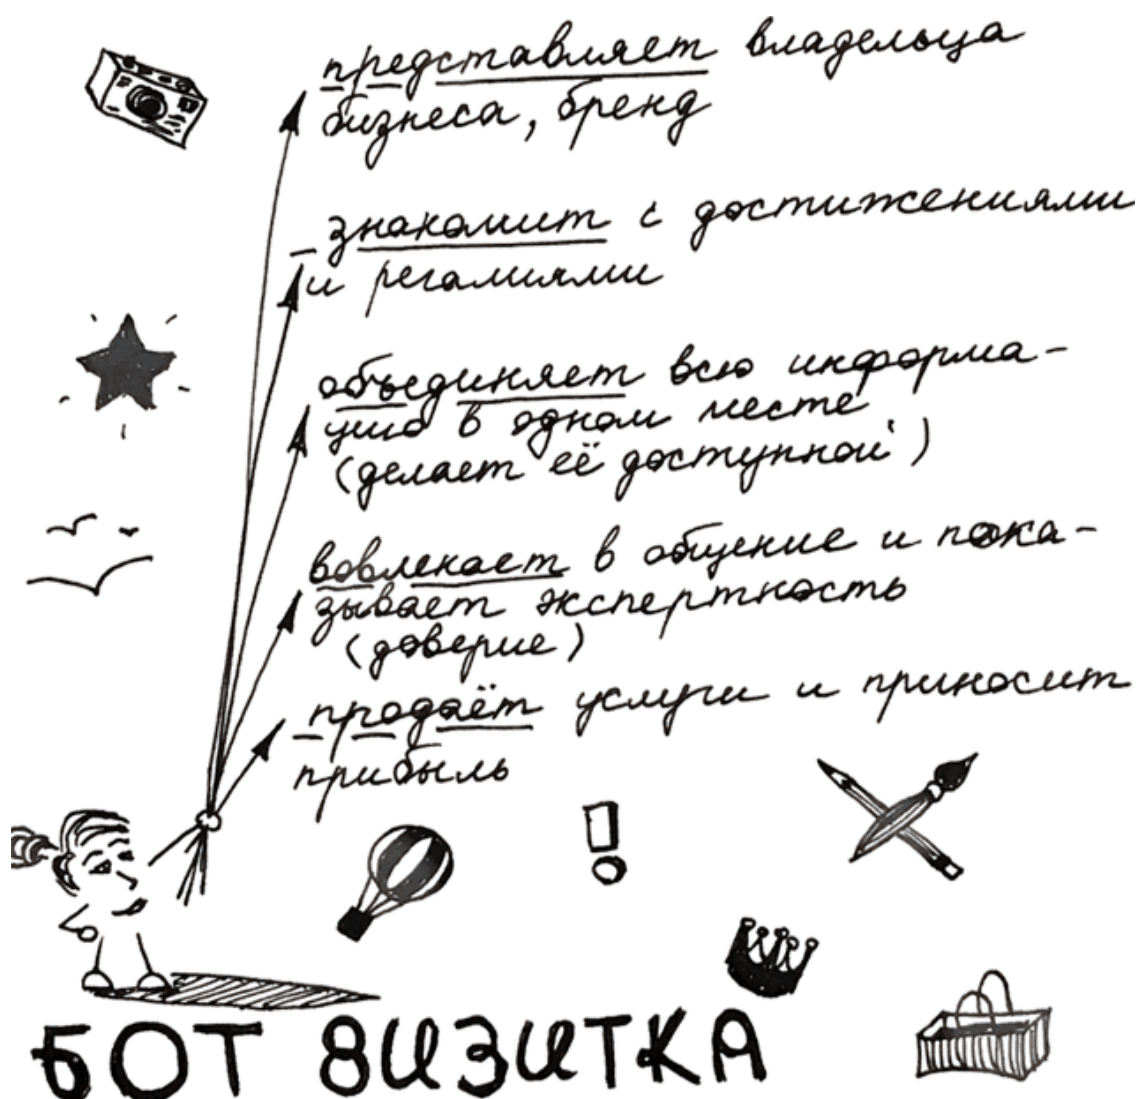 представляет владельца
бизнеса, бренд
знакомит с достижениями
и регалиями
объединяет всю информа-
цию в одном месте
(делает её доступной)
вовлекает в общение и пока-
зывает экспертность
(доверие)
продаёт услуги и приносит
прибыль
БОТ ВИЗИТКА